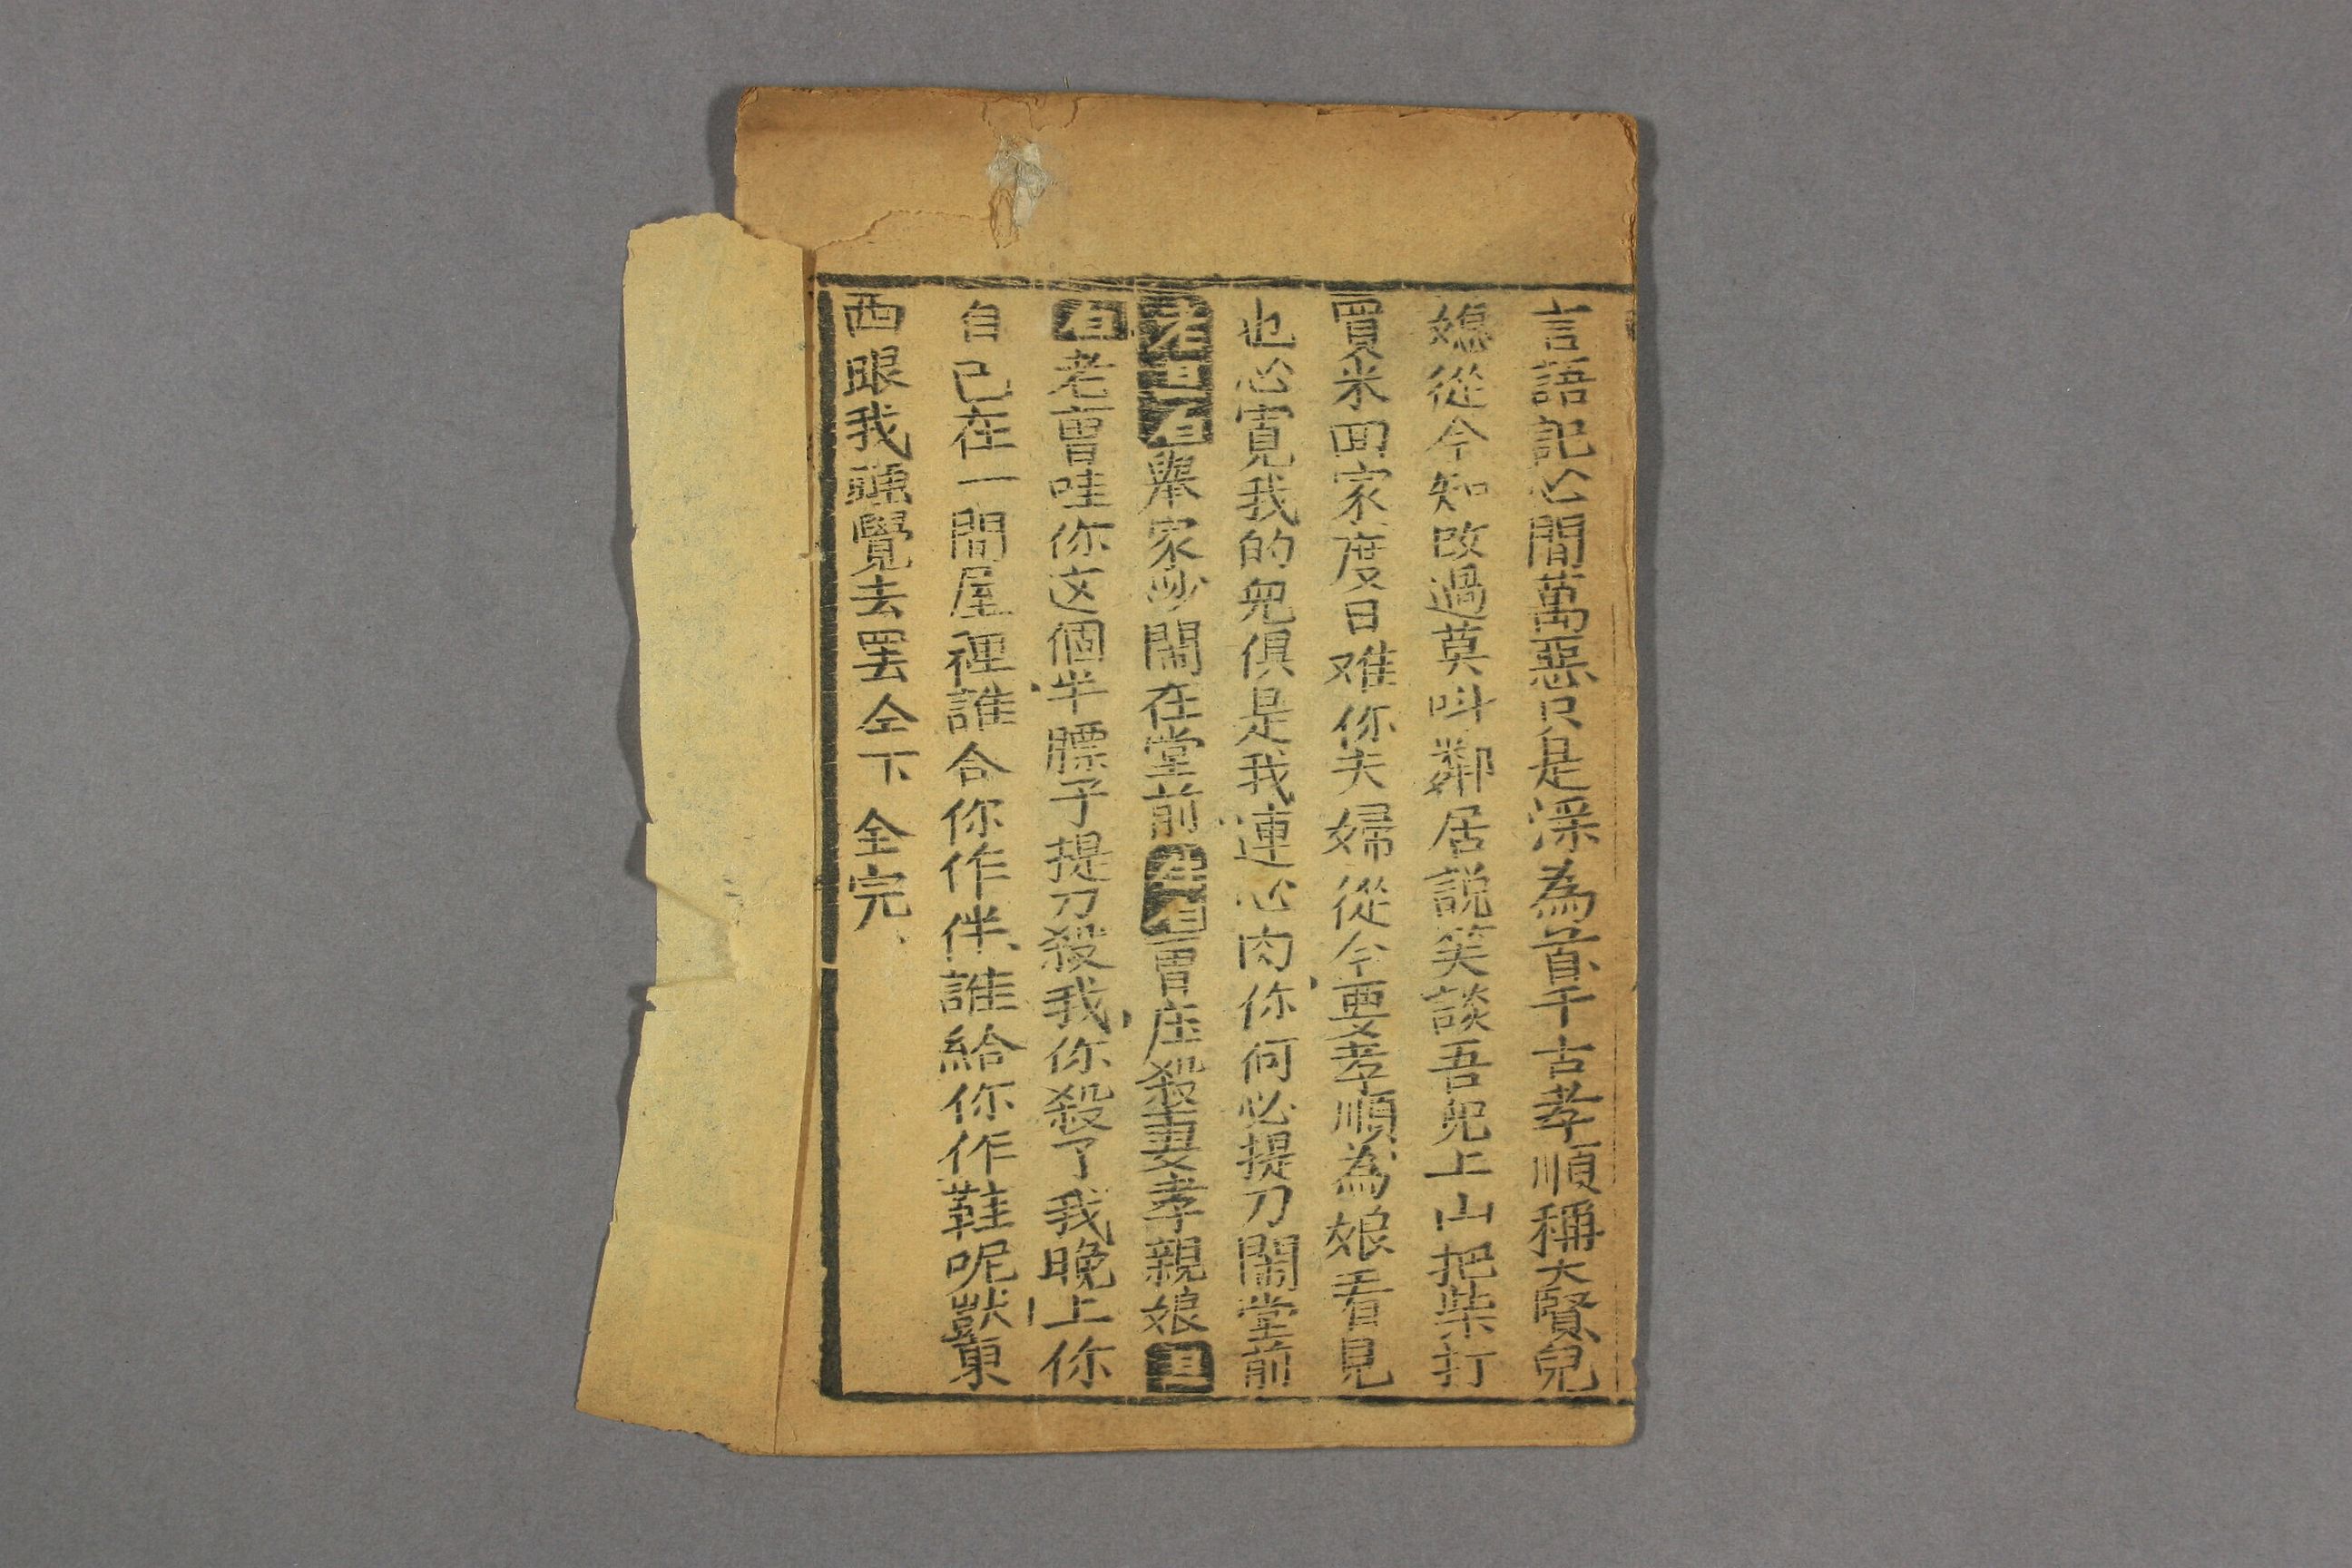 言語記心間萬惡只是淫為首千古孝順稱大賢兒
媳從今知改過莫呌鄰居説笑談吾児上山把柴打
買米囬家度日难你夫婦從今要孝順為娘看見
也心寛我的児俱是我連心肉你何必提刀鬧堂前
老旦白舉家吵鬧在堂前生白曹庄殺妻孝親娘旦
白老曹哇你这個半膘子提刀殺我你殺了我晚上你
自己在一間屋裡誰合你作伴誰給你作鞋呢獃東
西跟我睡覺去罢仝下 全完